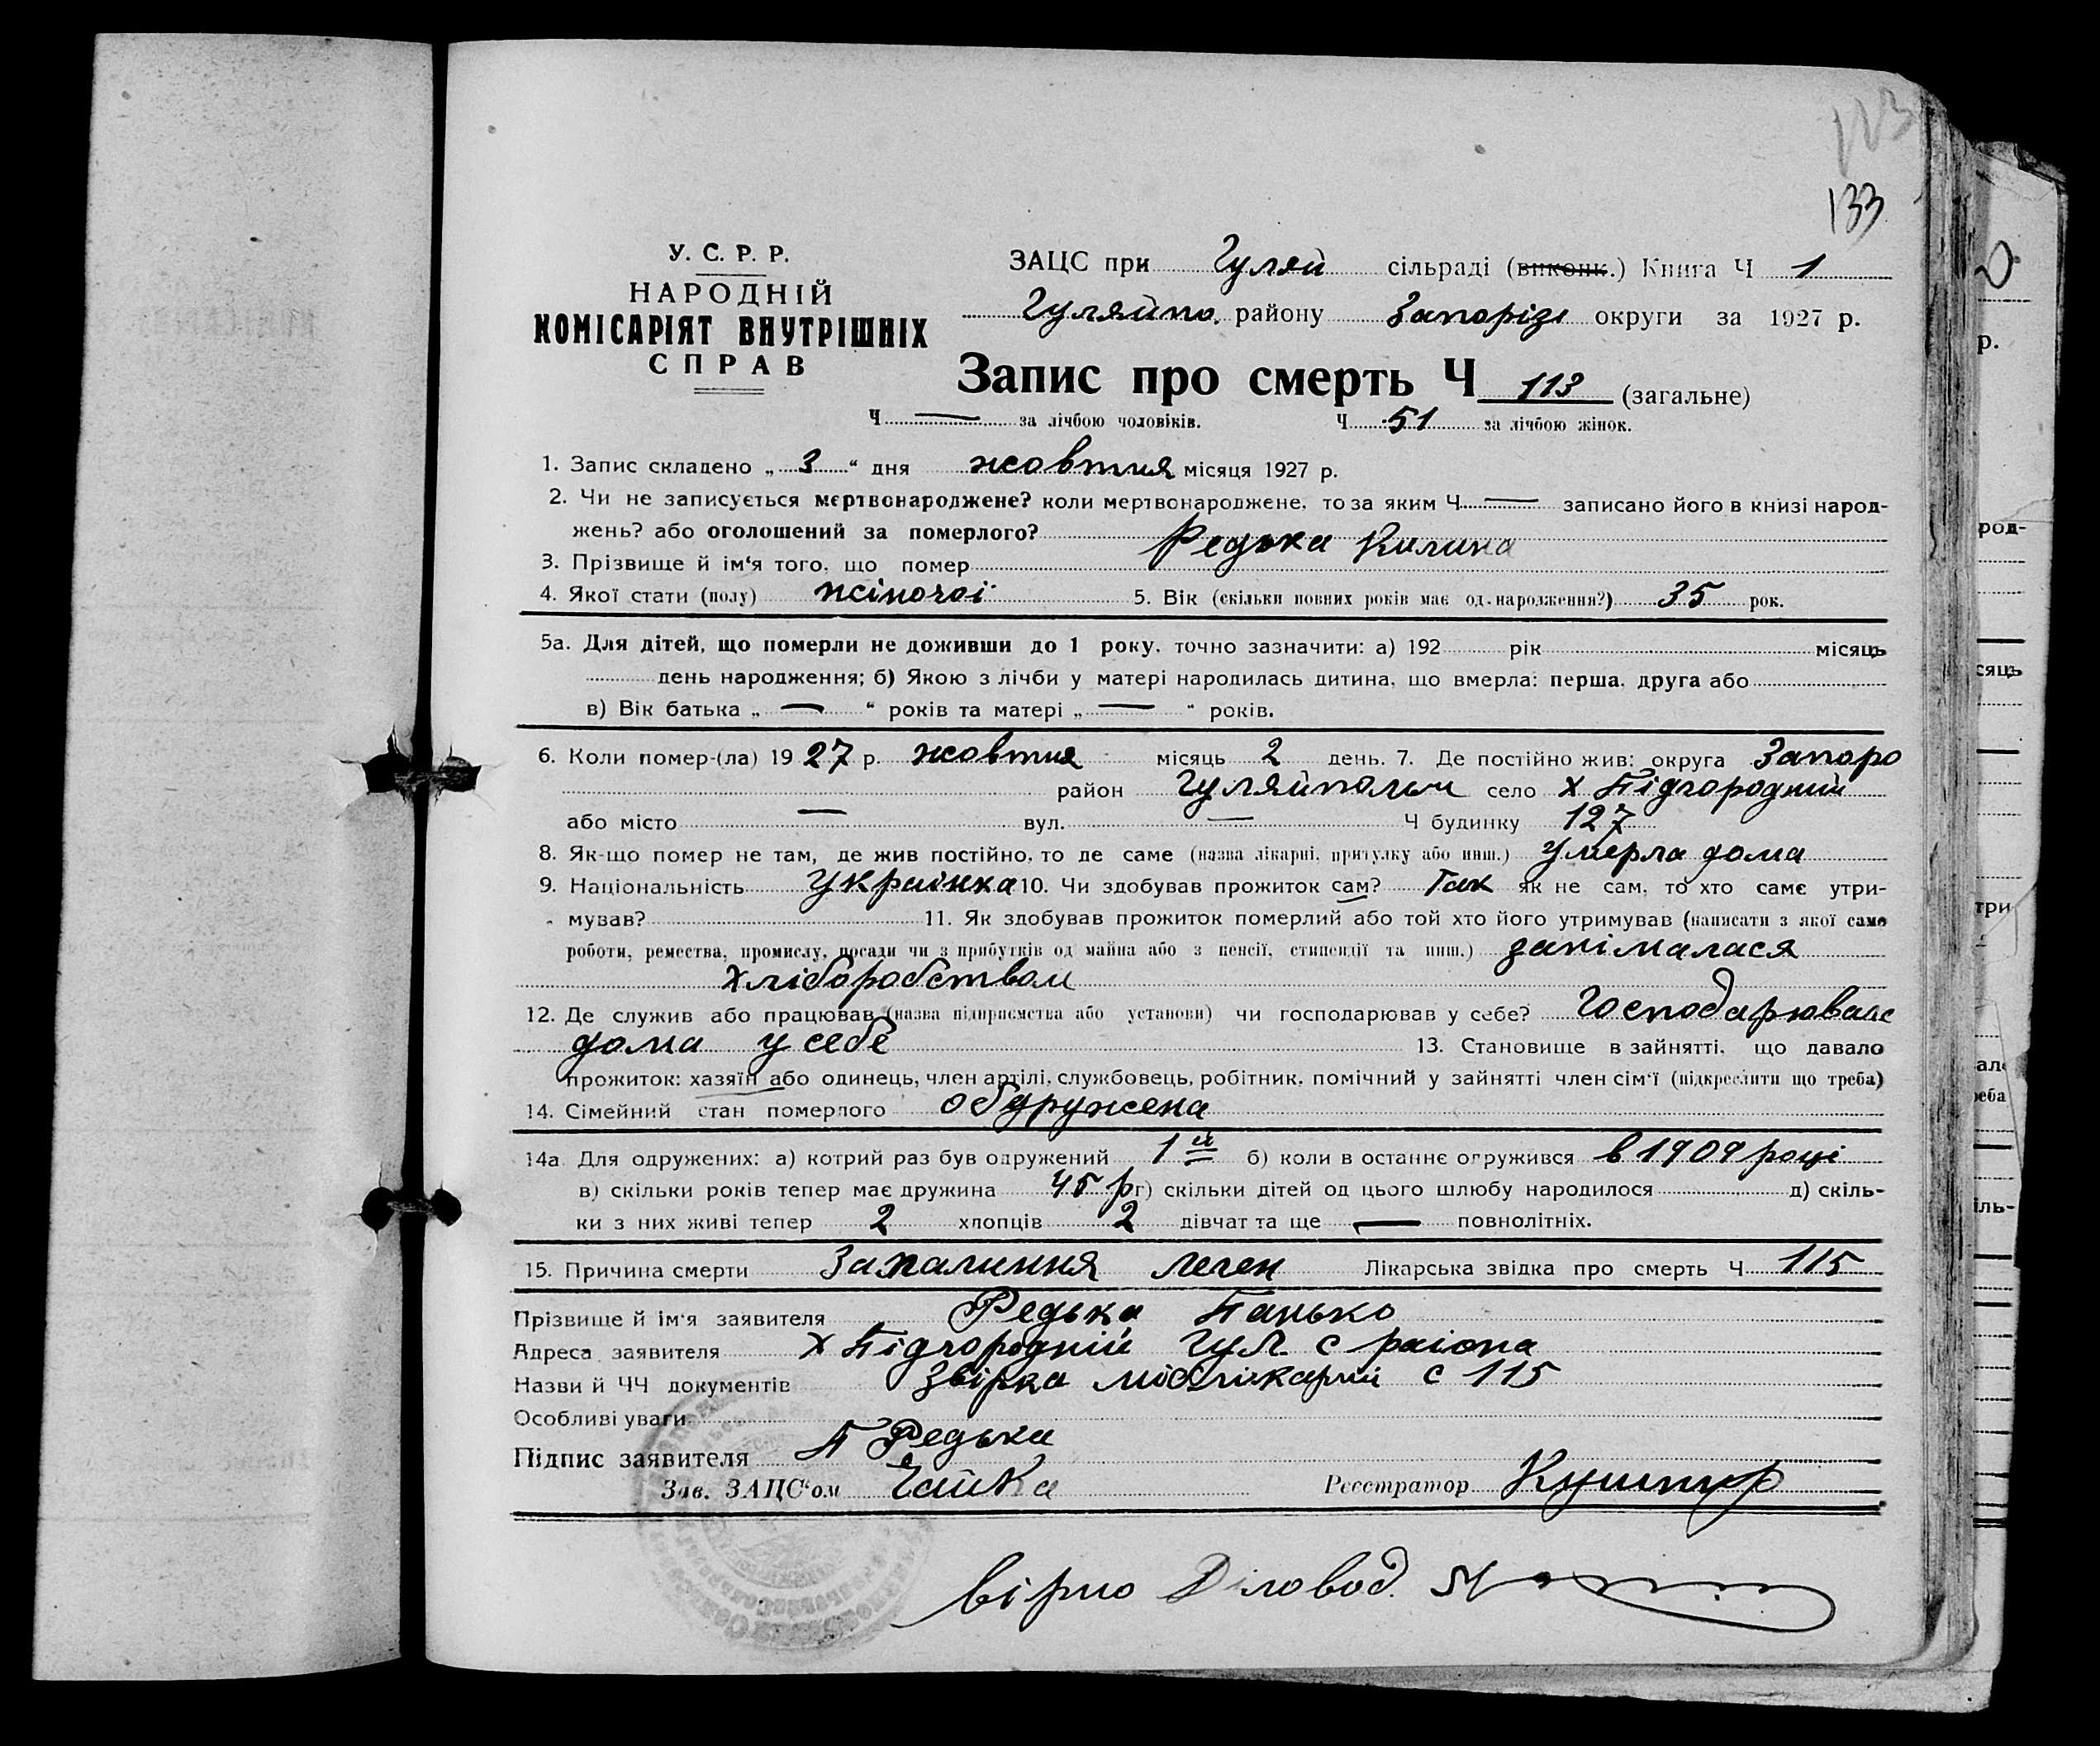 113
133
У. С. Р. Р.
НАРОДНІЙ
КОМІСАРІЯТ ВНУТРІШНІХ
СПРАВ
ЗАЦС при Гуляй сільраді (виконк.) Книга Ч 1
Гуляйпо. району Запорізь округи за 1927 р.
Запис про смерть Ч 113 (загальне)
Ч — за лічбою чоловіків. Ч 51 за лічбою жінок.
1. Запис складено „ 3 “ дня жовтня місяця 1927 р.
2. Чи не записується мертвонароджене? коли мертвонароджене, то за яким Ч — записано його в книзі народ-
жень? або оголошений за померлого?
3. Прізвище й ім‘я того, що помер Редька Килина
4. Якої стати (полу) жіночої 5. Вік (скільки повних років має од народження?) 35 рок.
5а. Для дітей, що померли не доживши до 1 року, точно зазначити: а) 192 рік місяць
день народження; б) Якою з лічби у матері народилась дитина, що вмерла: перша, друга або
в) Вік батька „ — “ років та матері „ — “ років.
6. Коли помер-(ла) 19 27 р. жовтня місяць 2 день. 7. Де постійно жив: округа Запоро
район Гуляйпольськ село х Підгородній
або місто — вул. — Ч будинку 127
8. Як-що помер не там, де жив постійно, то де саме (назва лікарні, притулку або инш.) Умерла дома
9. Національність українка 10. Чи здобував прожиток сам? Так як не сам, то хто саме утри-
мував? 11. Як здобував прожиток померлий або той хто його утримував (написати з якої саме
роботи, ремества, промислу, посади чи з прибутків од майна або з пенсії, стипендії та инш.) занімалася
хліборобством
12. Де служив або працював (назва підприємства або установи) чи господарював у себе? Господарювала
дома у себе 13. Становище в зайнятті, що давало
прожиток: хазяїн або одинець, член артілі, службовець, робітник, помічний у зайнятті член сім‘ї (підкреслити що треба)
14. Сімейний стан померлого обдружена
14а Для одружених: а) котрий раз був одружений 1й б) коли в останнє огружився в 1909 році
в) скільки років тепер має дружина 45 р г) скільки дітей од цього шлюбу народилося д) скіль-
ки з них живі тепер 2 хлопців 2 дівчат та ще — повнолітніх.
15. Причина смерти Запалиння леген Лікарська звідка про смерть Ч 115
Прізвище й ім‘я заявителя Редька Панько
Адреса заявителя х Підгородній Гул. с раіона
Назви й ЧЧ документів с 115
Особливі уваги
Підпис заявителя П Редька
Зав. ЗАЦС‘ом Чайка Реєстратор Кушнір
вірно Діловод.